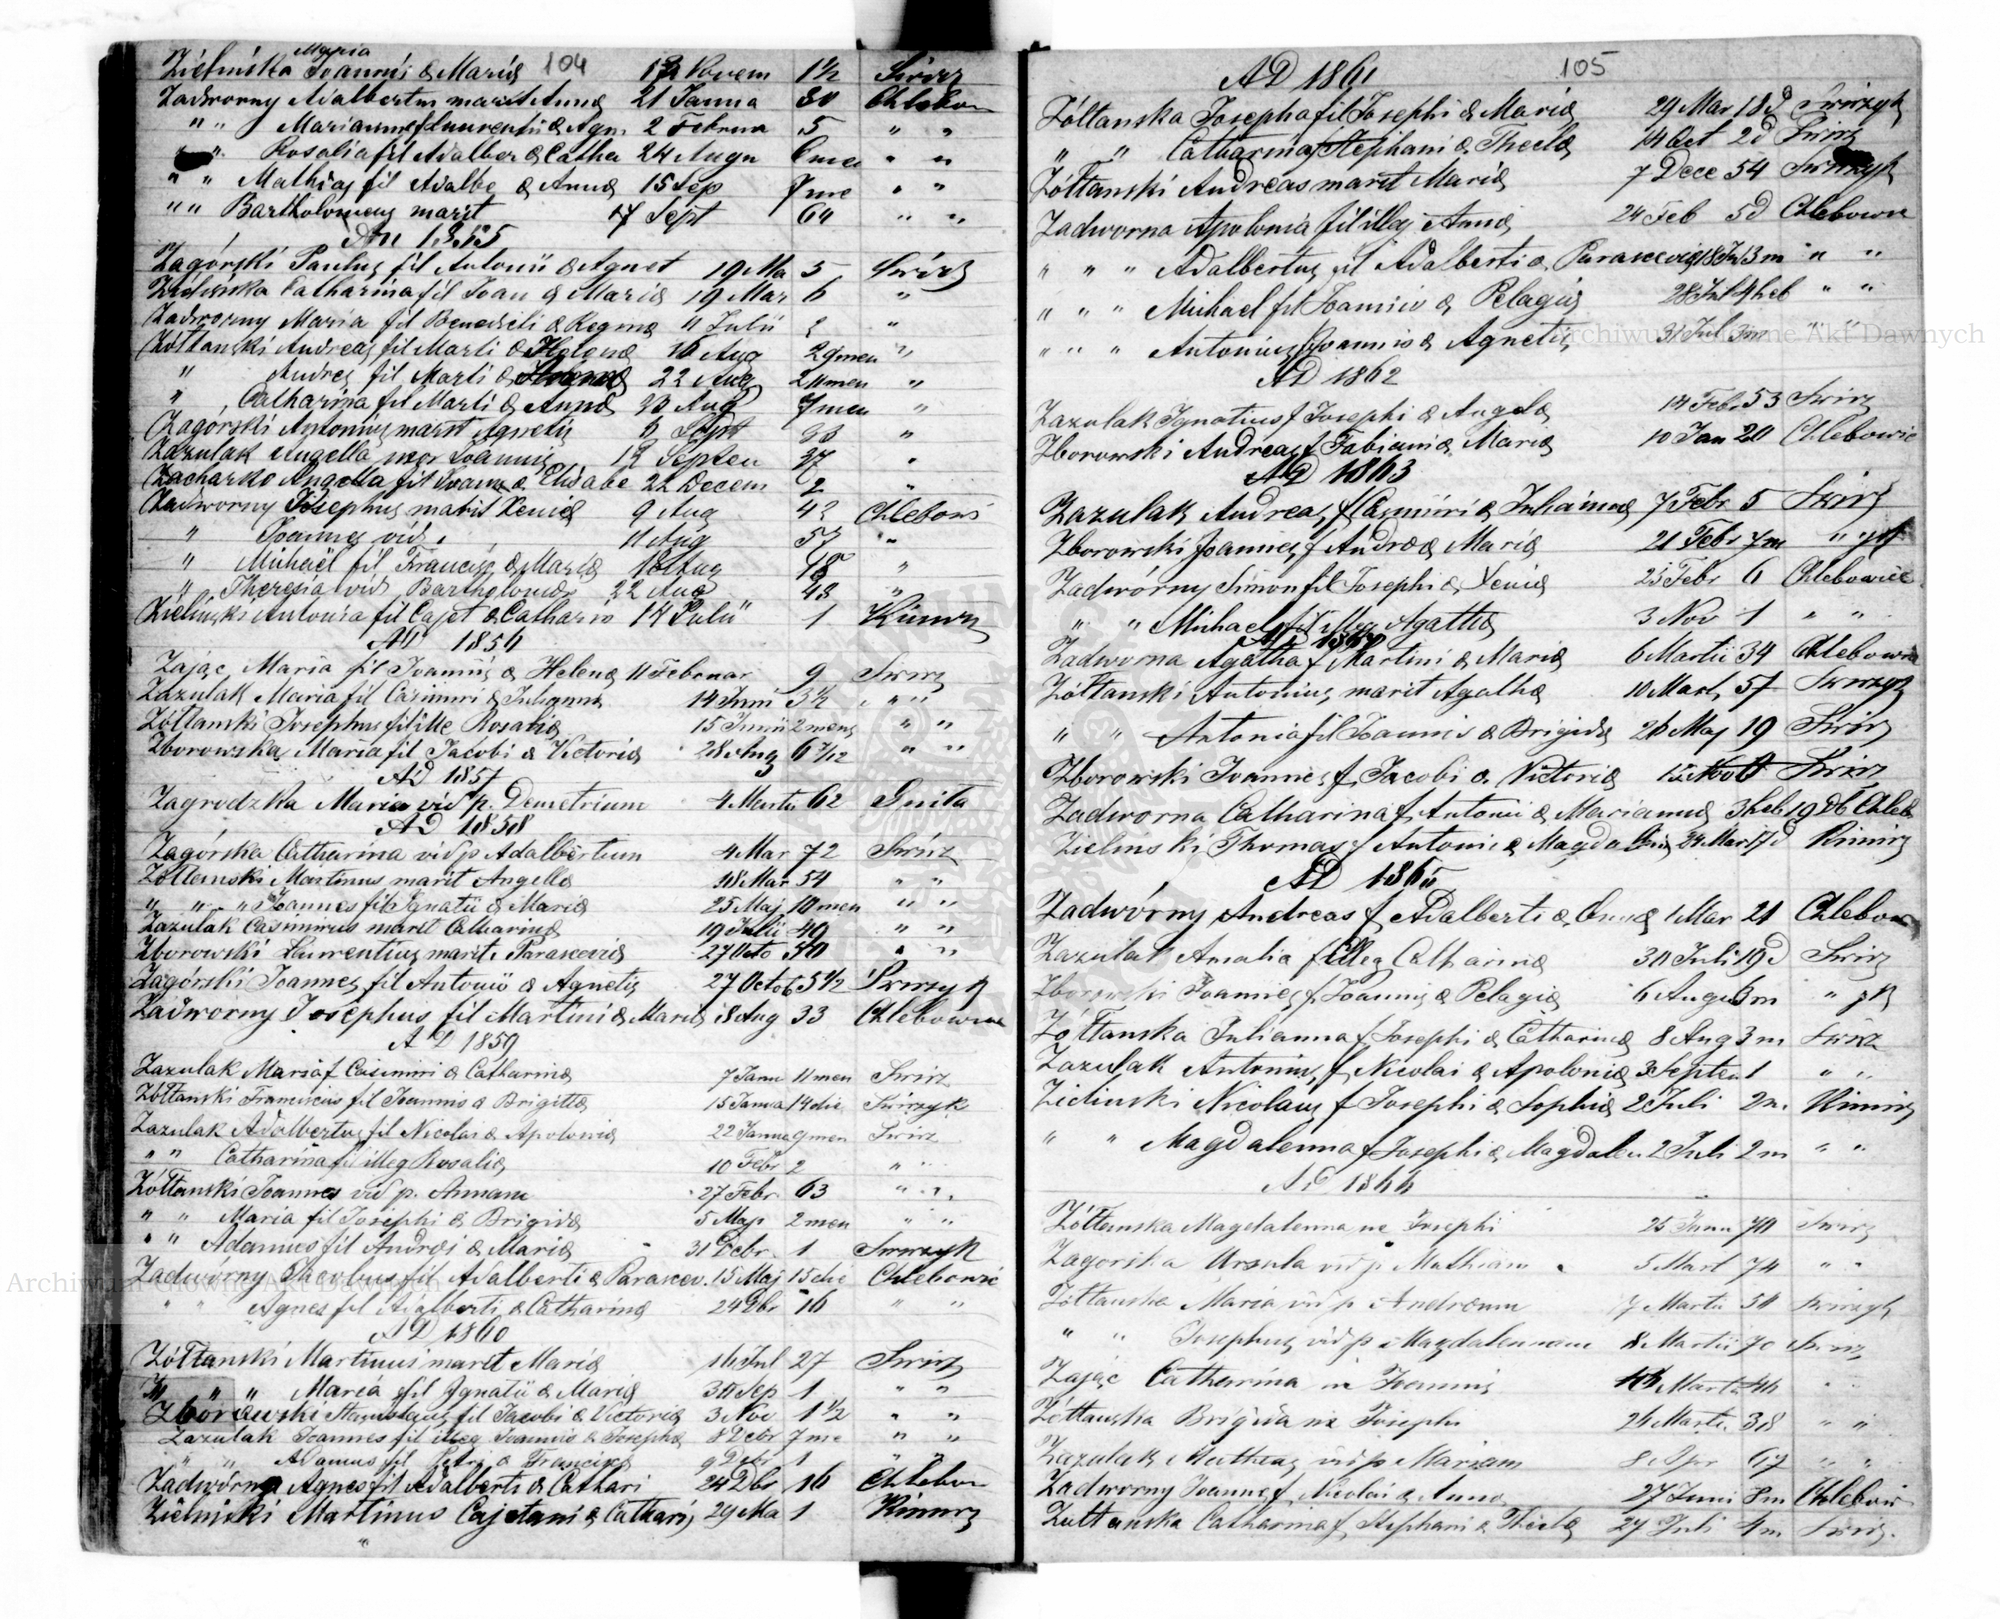 104
Maria
Zielińska Joannis & Maria 1½ Świrz
Zadworny Adalbertus marit Anna 21 Janua 30 Chlebow
" " Marianna f Laurentii & Agn. 2 Februa 5 " "
" Rosalia fil Adalber & Catha 24 Augu 6 me " "
" " Mathias fil Adalbe & Anna 15 Sep 7 me " "
" " Bartholomeus marit 17 Sept 64 " "
An 1855
Zagórski Paulus fil Antonii & Agnet 19 Ma 5 Świrz
Zielińska Catharina fil Joan & Maria 19 Mar 6 "
Zadworny Maria fil Benedicti & Regina 11 Julii "
Żółtański Andreas fil Marti & Helena 16 Aug men "
" Andre fil Marti & 22 Aug men "
" Catharina fil Marti & Anna 23 Aug 7 men "
Zagórski Antonius marit Agnetis Sept "
Zazulak Angella uxor Joannis 12 Septem 37 "
Zacharko Angella fil Joann & Elisabe 22 Decem 2 "
Zadworny Josephus marit Xenia 9 Aug 43 Chlebowi
" Joannes vid. 11 Aug 57 "
" Michael fil Francisc & Maria 18 Aug "
" Theresia vid Bartholomae 22 Aug 43 "
Zieliński Antonia fil Cajet & Catharin 14 Julii 1 Kimirz
AD 1856
Zając Maria fil Joannis & Helena 11 Februar 9 Świrz
Zazulak Maria fil Casimiri & Julianna 14 Junii 3½ " "
Żółtanski Josephus fil ille Rosalia 15 Junii 2 mens " "
Zborowska Maria fil Jacobi & Victoria 28 Aug 6 7/12 " "
AD 1857
Zagrodzka Maria vid p. Demetrium 4 Martii 62 Gnila
AD 1858
Zagórska Catharina vid p Adalbertum 4 Mar 72 Świrz
Żółtanski Martinus marit Angella 18 Mar 54 " "
" " " Joannes fil Ignatii & Maria 25 Maj 10 men " "
Zazulak Casimirus marit Catharina 19 Julii 49 " "
Zborowski Laurentius marit Parascevia 27 Octo 50 " "
Zagórski Joannes fil Antonii & Agnetis 27 Octob 5½ Świrzyk
Zadworny Josephus fil Martini & Maria 18 Aug 33 Chlebowice
AD 1859
Zazulak Maria f Casimiri & Catharina 7 Janu 11 men Świrz
Żółtanski Franciscus fil Joannis & Brigitta 15 Janua 14 die Świrzyk
Zazulak Adalbertus fil Nicolai & Apolonia 22 Janua 9 men Świrz
" " Catharina fil illeg Rosalia 10 Febr 2 " "
Żółtanski Joannes vid p. Annam 27 Febr. 63 " "
" " Maria fil Josephi & Brigida 5 Maj 2 men " "
" " Adamus fil Andrei & Maria 31 Debr. 1 Świrzyk
Zadwórny Jacobus fil Adalberti & Parascev. 15 Maj 15 die Chlebowic
" " Agnes fil Adalberti & Catharina 24 Dbr 16 " "
AD 1860
Żółtanski Martinus marit Maria 16 Jul 27 Świrz
" " Maria fil Ignatii & Maria 30 Sep 1 " "
Zborowski Stanislaus fil Jacobi & Victoria 3 Nov 1½ " "
Zazulak Joannes fil illeg Joannis & Josepha 8 Debr 7 me " "
" " Adamus fil Petri & Francisca 9 Debr 1 " "
Zadwórna Agnes fil Adalberti & Cathari 24 Dbr 16 Chlebow
Zieliński Martinus Cajetani & Cathari 29 Ma 1 Kimirz
"
105
AD 1861
Żółtanska Josepha fil Josephi & Maria 29 Mar 18 d Świrzyk
" " Catharina f Stephani & Thecla 14 Oct 2 d Świrz
Żółtanski Andreas marit Maria 7 Dece 54 Świrzyk
Zadworna Apolonia fil illeg Anna 24 Feb 5 d Chlebowi
" " " Adalbertus fil Adalberti & Parascevia 18 Ju 3 m " "
" " " Michael fil Joannis & Pelagia 28 Jul 4 heb " "
" " " Antonius f Joannis & Agnetis 31 Jul 3 m " "
AD 1862
Zazulak Ignatius f Josephi & Angela 14 Febr 53 Świrz
Zborowski Andreas f Fabiani & Maria 10 Jan 20 Chlebowic
AD 1863
Zazulak Andreas f Casimiri & Julianna 7 Febr 5 Świrz
Zborowski Joannes f Andrea & Maria 21 Febr 7 m " yk
Zadwórny Simon fil Josephi & Xenia 25 Febr 6 Chlebowice
" " Michael fil illeg Agatha 3 Nov 1 " "
AD 1864
Zadworna Agatha f Martini & Maria 6 Martii 34 Chlebowice
Żółtanski Antonius marit Agatha 10 Mart 57 Świrzyk
" " Antonia fil Joannis & Brigida 26 Maj 19 Świrz
Zborowski Joannes f Jacobi & Victoria Świrz
Zadworna Catharina f Antonii & Marianna 3 heb 19 Db Chleb
Zielinski Thomas f Antonii & Magdalena 24 Mar 17 d Kimirz
AD 1865
Zadwórny Andreas f Adalberti & Anna 1 Mar 21 Chlebow
Zazulak Amalia f illeg Catharina 30 Juli 19 d Świrz
Zborowski Joannes f Joannis & Pelagia 6 Augu 3 m " yk
Żółtanska Julianna f Josephi & Catharina 8 Aug 3 m Świrz
Zazulak Antonius f Nicolai & Apolonia 3 Septem 1 " "
Zielinski Nicolaus f Josephi & Sophia 2 Juli 2 m. Kimirz
" " Magdalenna f Josephi & Magdalen 2 Juli 2 m " "
AD 1866
Żółtanska Magdalenna ux Josephi 25 Janu 70 Świrz
Zagorska Ursula vid p Mathiam 5 Mart 74 " "
Żółtanska Maria vid p Andream 7 Martii 50 Świrzyk
" " Josephus vid p Magdalennam 8 Martii 70 Świrz
Zając Catharina ux Joannis Martii 46 " "
Żółtanska Brigida ux Josephi 24 Martii 38 " "
Zazulak Matheus vid p Mariam 8 Apr 67 " "
Zadworny Joannes f Nicolai & Anna 27 Juni 8 m Chlebowi
Żułtanska Catharina f Stephani & Thecla 27 Juli 4 m Świrz.
Archiwum Główne Akt Dawnych
Archiwum Główne Akt Dawnych